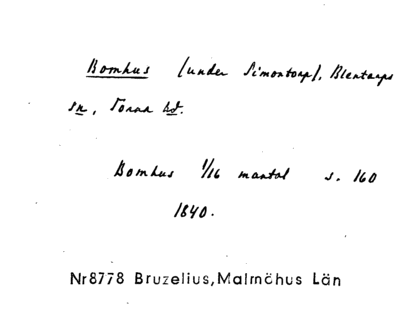 Bomhus (under Simontorp), Blentarps
sn, Torna hd.
Bomhus 1/16 mantal s. 160
1840.
Nr8778 Bruzelius, Malmöhus Län